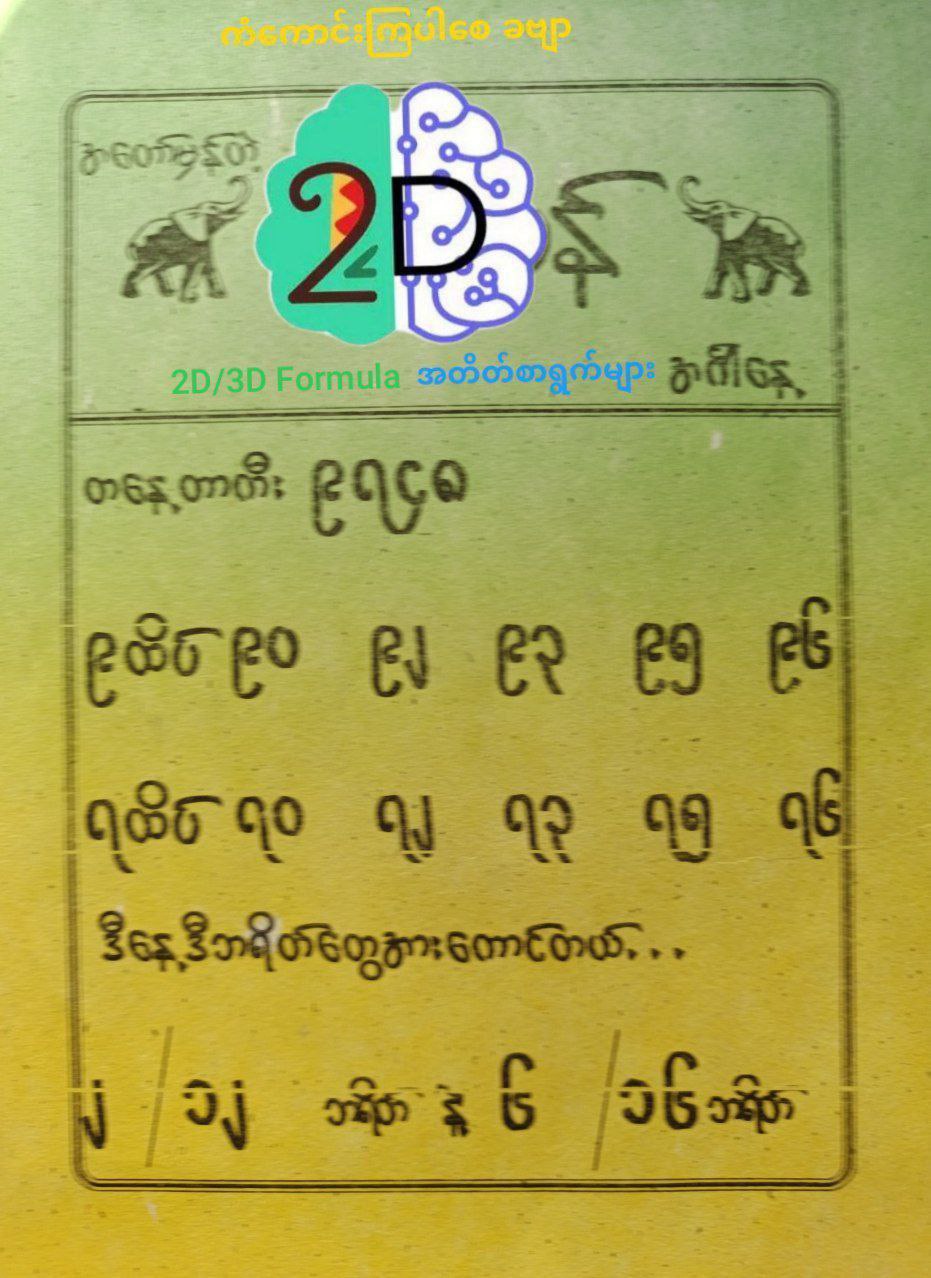 ကံကောင်းကြပါစေ ခဗျာ
အတော်မှန်တဲ့
2D န်
2D/3D Formula အတိတ်စာရွက်များ အင်္ဂါနေ့
တနေ့တာတီး ၉၇၄၈
၉ထိပ် ၉၀ ၉၂ ၉၃ ၉၅ ၉၆
၇ထိပ် ၇၀ ၇၂ ၇၃ ၇၅ ၇၆
ဒီနေ့ဒီဘရိတ်တွေအားကောင်တယ်...
၂ / ၁၂ ဘရိတ် နဲ့ ၆ / ၁၆ ဘရိတ်